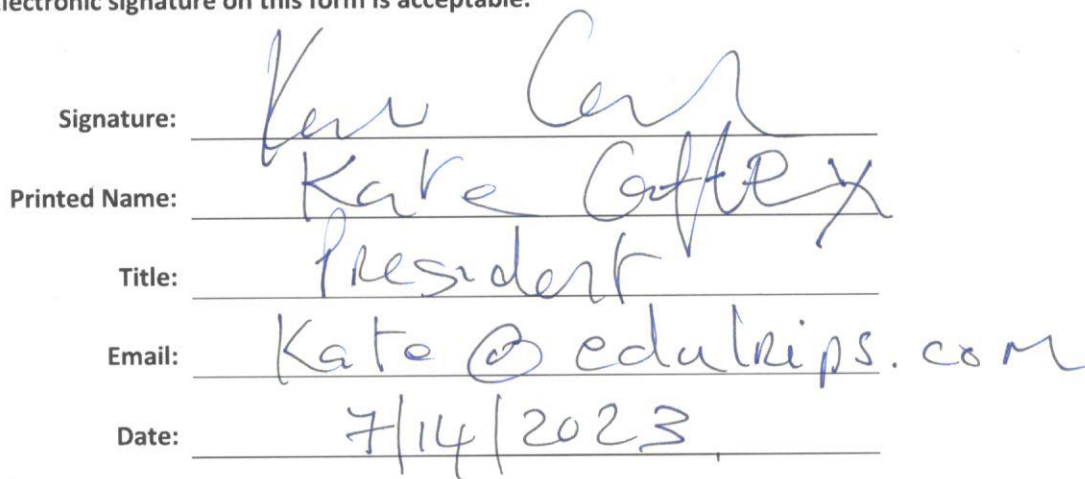 Electronic signature on this form is acceptable.
Signature:
Printed Name: Kate
Title: President
Email: Kate@edutrips.com
Date: 7/14/2023